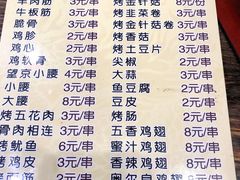 羊肉筋 3元/串 烤金针菇 8元/份
牛板筋 3元/串 烤韭菜卷 3元/串
脆骨 3元/串 烤金针菇卷 3元/串
鸡胗 2元/串 烤香菇 3元/串
鸡心 2元/串 烤土豆片 3元/串
鸡软骨 3元/串 尖椒 2元/串
望京小腰 4元/串 大蒜 2元/串
小腰 2元/串 鱼豆腐 2元/串
大腰 8元/串 豆皮 2元/串
烤五花肉 3元/串 烤肠 2元/串
骨肉相连 3元/串 五香鸡翅 8元/串
烤鱿鱼 6元/串 蜜汁鸡翅 8元/串
烤鸡皮 3元/串 香辣鸡翅 8元/串
3元/串 奥尔良鸡翅 8元/串